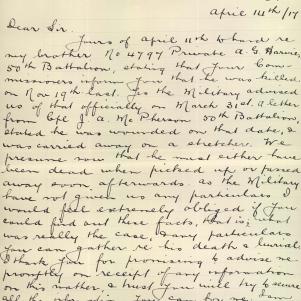 April 14th/17
Dear Sir.
Yours of April 11th to hand re
my brother No 4797 Private A. G. Harvie,
50th Battalion, stating that your Com-
missioners inform you that he was killed
on Nov 19th last. Yes the Military advised
us of that officially on March 31st. A letter
from Cpl J. A. McPherson 50th Battalion,
stated he was wounded on that date, &
was carried away on a stretcher. We
presume now that he must either have
been dead when picked up or passed
away soon afterwards, as the Military
have not given us any particulars. I
would feel extremely obliged if you
could find out these facts, that is, what
was really the case, & any particulars
you can gather re his death & burial.
I thank you for promising to advise me
promptly on receipt of any information
on this matter, & trust you will try & secure
all